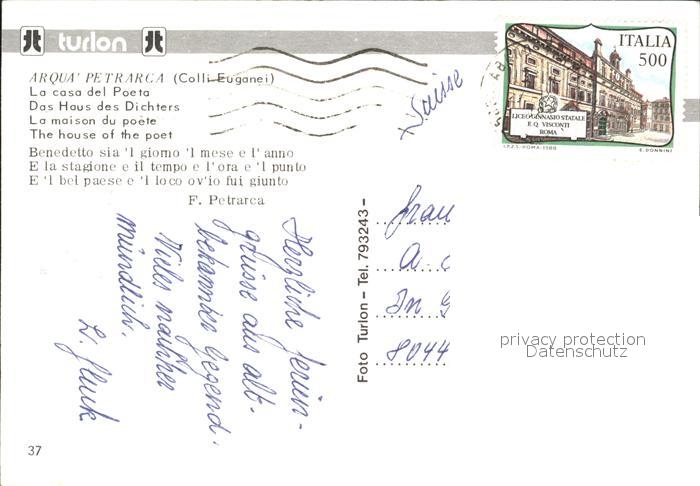 turlon
ARQUA' PETRARCA (Colli Euganei)
La casa del Poeta
Das Haus des Dichters
La maison du poëte
The house of the poet
Benedetto sia 'l giorno 'l mese e l' anno
E la stagione e il tempo e l'ora e 'l punto
E 'l bel paese e 'l loco ov'io fui giunto
F. Petrarca
Herzliche Ferien-
grüsse aus alt-
bekannter Gegend.
Vieles nachher
mündlich.
37
Foto Turlon - Tel. 793243 -
Suisse
ITALIA
500
LICEO GINNASIO STATALE
E.Q. VISCONTI
ROMA
I.P.Z.S.-ROMA-1988
E. DONNINI
Frau
A. C
In G
8044
privacy protection
Datenschutz